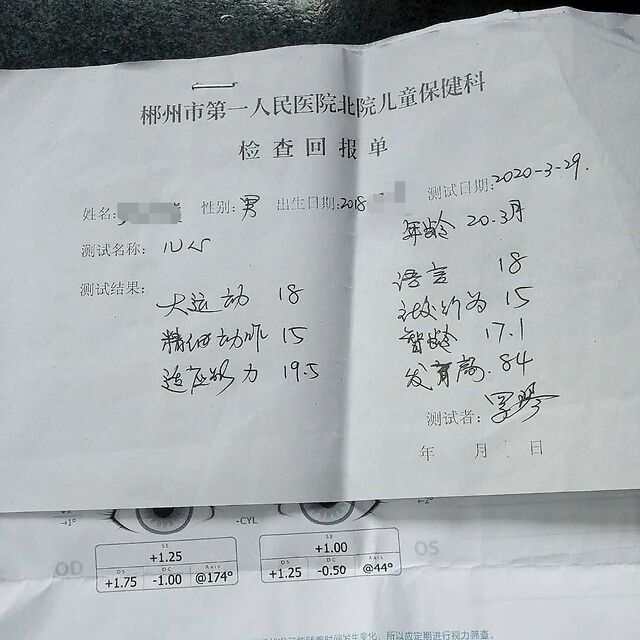 郴州市第一人民医院北院儿童保健科
检查回报单
姓名: 性别: 男 出生日期: 2018 测试日期: 2020-3-29.
年龄 20.3月
测试名称: 儿心
测试结果:
大运动 18 语言 18
精细动作 15 社交行为 15
适应能力 19.5 智龄 17.1
发育商. 84
测试者:
年 月 日
→1° -CYL
OD OS
SE SE
+1.25 +1.00
DS DC Axis DS DC Axis
+1.75 -1.00 @174° +1.25 -0.50 @44°
随着时间发生变化，所以应定期进行视力筛查。